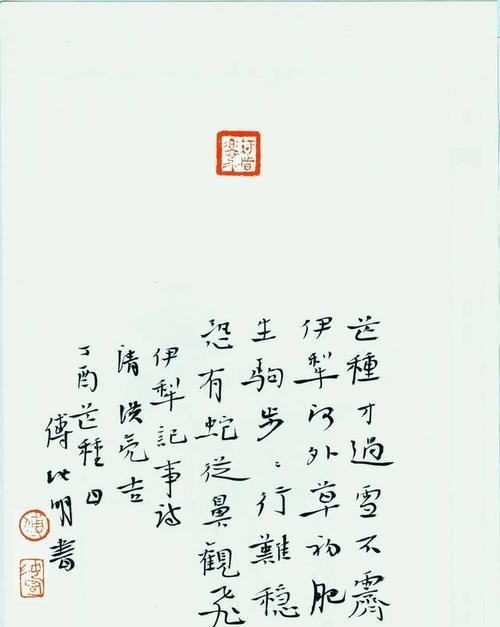 芒種才過雪不霽
伊犁河外草初肥
生駒步〻行難穩
恐有蛇從鼻觀飛
伊犁記事詩
清洪亮吉
丁酉芒種日
傅明書
傅